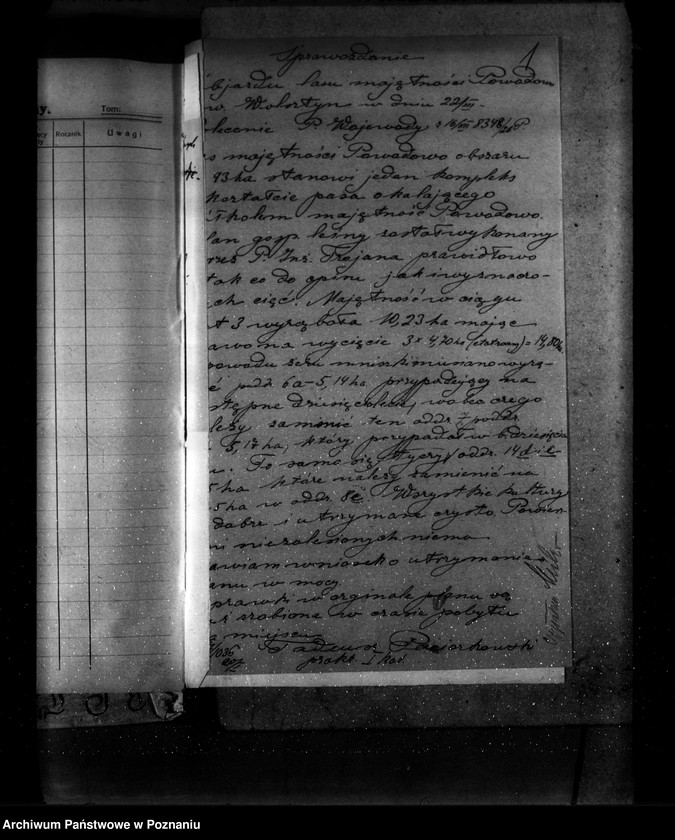 y.
Tom:
Rocznik
Uwagi
1
Sprawozdanie
bjazdu lasu majętności Powodowo
w. Wolsztyn w dniu 22/III.
lecenie P. Wojewody z 16/III 8348/ P
s majętności Powodowo obszaru
93 ha stanowi jeden kompleks
kształcie pasa okalającego
okołom majętność Powodowo.
lan gosp. leśny został wykonany
rzez P. Inż. Trojana prawidłowo
tak co do opisu jak i wyznaczo-
ch cięć. Majętność w ciągu
t 3 wyrąbała 10,23 ha mając
awo na wycięcie 3 x 4,70 ha
powodu żeru mniszki musiano wyrą-
ć pdr 6a - 5,14 ha przypadający na
stępne dziesięciolecie, wobec czego
leży zamienić ten oddz. poddz
5,17 ha, który przypadał w
u. To samo się tyczy oddz. 14d i
5 ha które należy zamienić na
5 ha w oddz. 8c. Wszystkie kultury
dobre i utrzymane czysto. Powierz-
ni niezalesionych niema
awiam wniosek o utrzymanie
anu w mocy
prawki w orginale planu są
ż zrobione w czasie pobytu
a miejscu
Tadeusz Paciorkowski
prakt. I kat
Archiwum Państwowe w Poznaniu